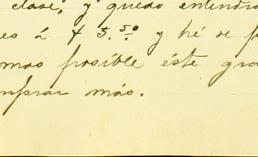 clase, y quedo entendid
es 2 $ 5.50 y hé de p
mas posible éste gra
mprar más.